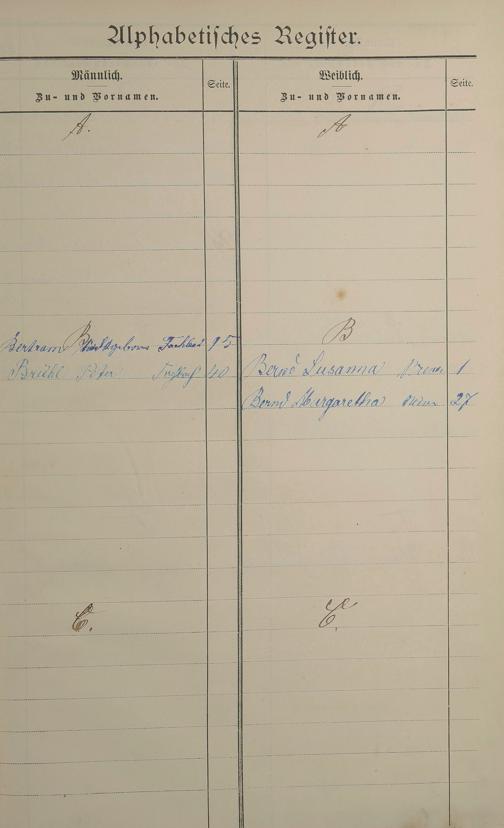 Alphabetisches Register.
Männlich.
Zu- und Vornamen.
Seite.
Weiblich.
Zu- und Vornamen.
Seite.
A.
A
B
B
Bertram 95
Brühl Peter 40
Bernd Susanna 1
Bernd Margaretha 27
C.
C.